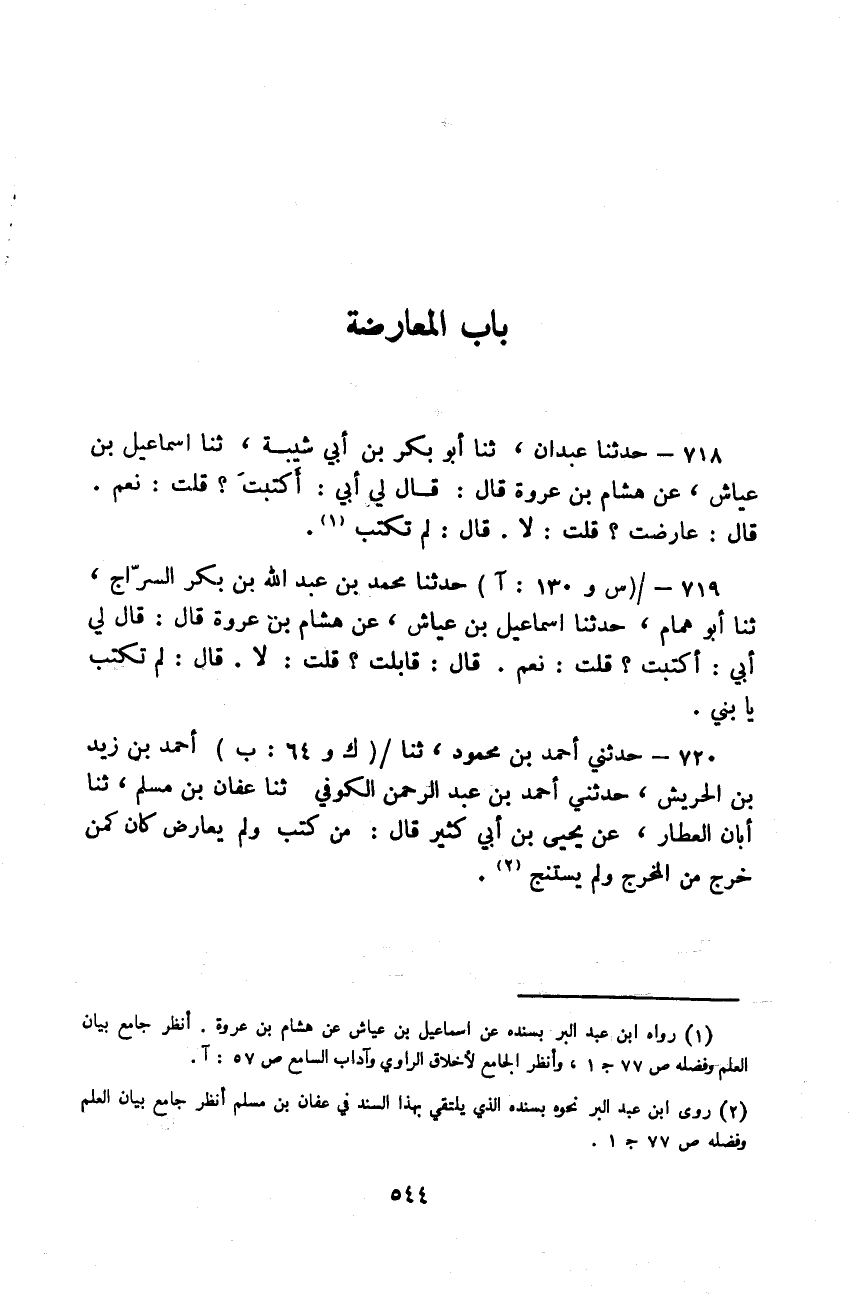 باب المعارضة
٧١٨ – حدثنا عبدان ، ثنا أبو بكر بن أبي شيبـة ، ثنا اسماعيل بن
عياش ، عن هشام بن عروة قال : قـال لي أبي : أكتبتَ ؟ قلت : نعم .
قال : عارضت ؟ قلت : لا . قال : لم تكتب (١) .
٧١٩ – /(س و ١٣٠ : آ ) حدثنا محمد بن عبد الله بن بكر السرّاج ،
ثنا أبو همام ، حدثنا اسماعيل بن عياش ، عن هشام بن عروة قال : قال لي
أبي : أكتبت ؟ قلت : نعم . قال : قابلت ؟ قلت : لا . قال : لم تكتب
يا بني .
٧٢٠ – حدثني أحمد بن محمود ، ثنا /( ك و ٦٤ : ب ) أحمد بن زيد
بن الحريش ، حدثني أحمد بن عبد الرحمن الكوفي ثنا عفان بن مسلم ، ثنا
أبان العطار ، عن يحيى بن أبي كثير قال : من كتب ولم يعارض كان كمن
خرج من المخرج ولم يستنج (٢) .
(١) رواه ابن عبد البر بسنده عن اسماعيل بن عياش عن هشام بن عروة . أنظر جامع بيان
العلم وفضله ص ٧٧ جـ ١ ، وأنظر الجامع لأخلاق الراوي وآداب السامع ص ٥٧ : آ .
(٢) روى ابن عبد البر نحوه بسنده الذي يلتقي بهذا السند في عفان بن مسلم أنظر جامع بيان العلم
وفضله ص ٧٧ جـ ١ .
٥٤٤